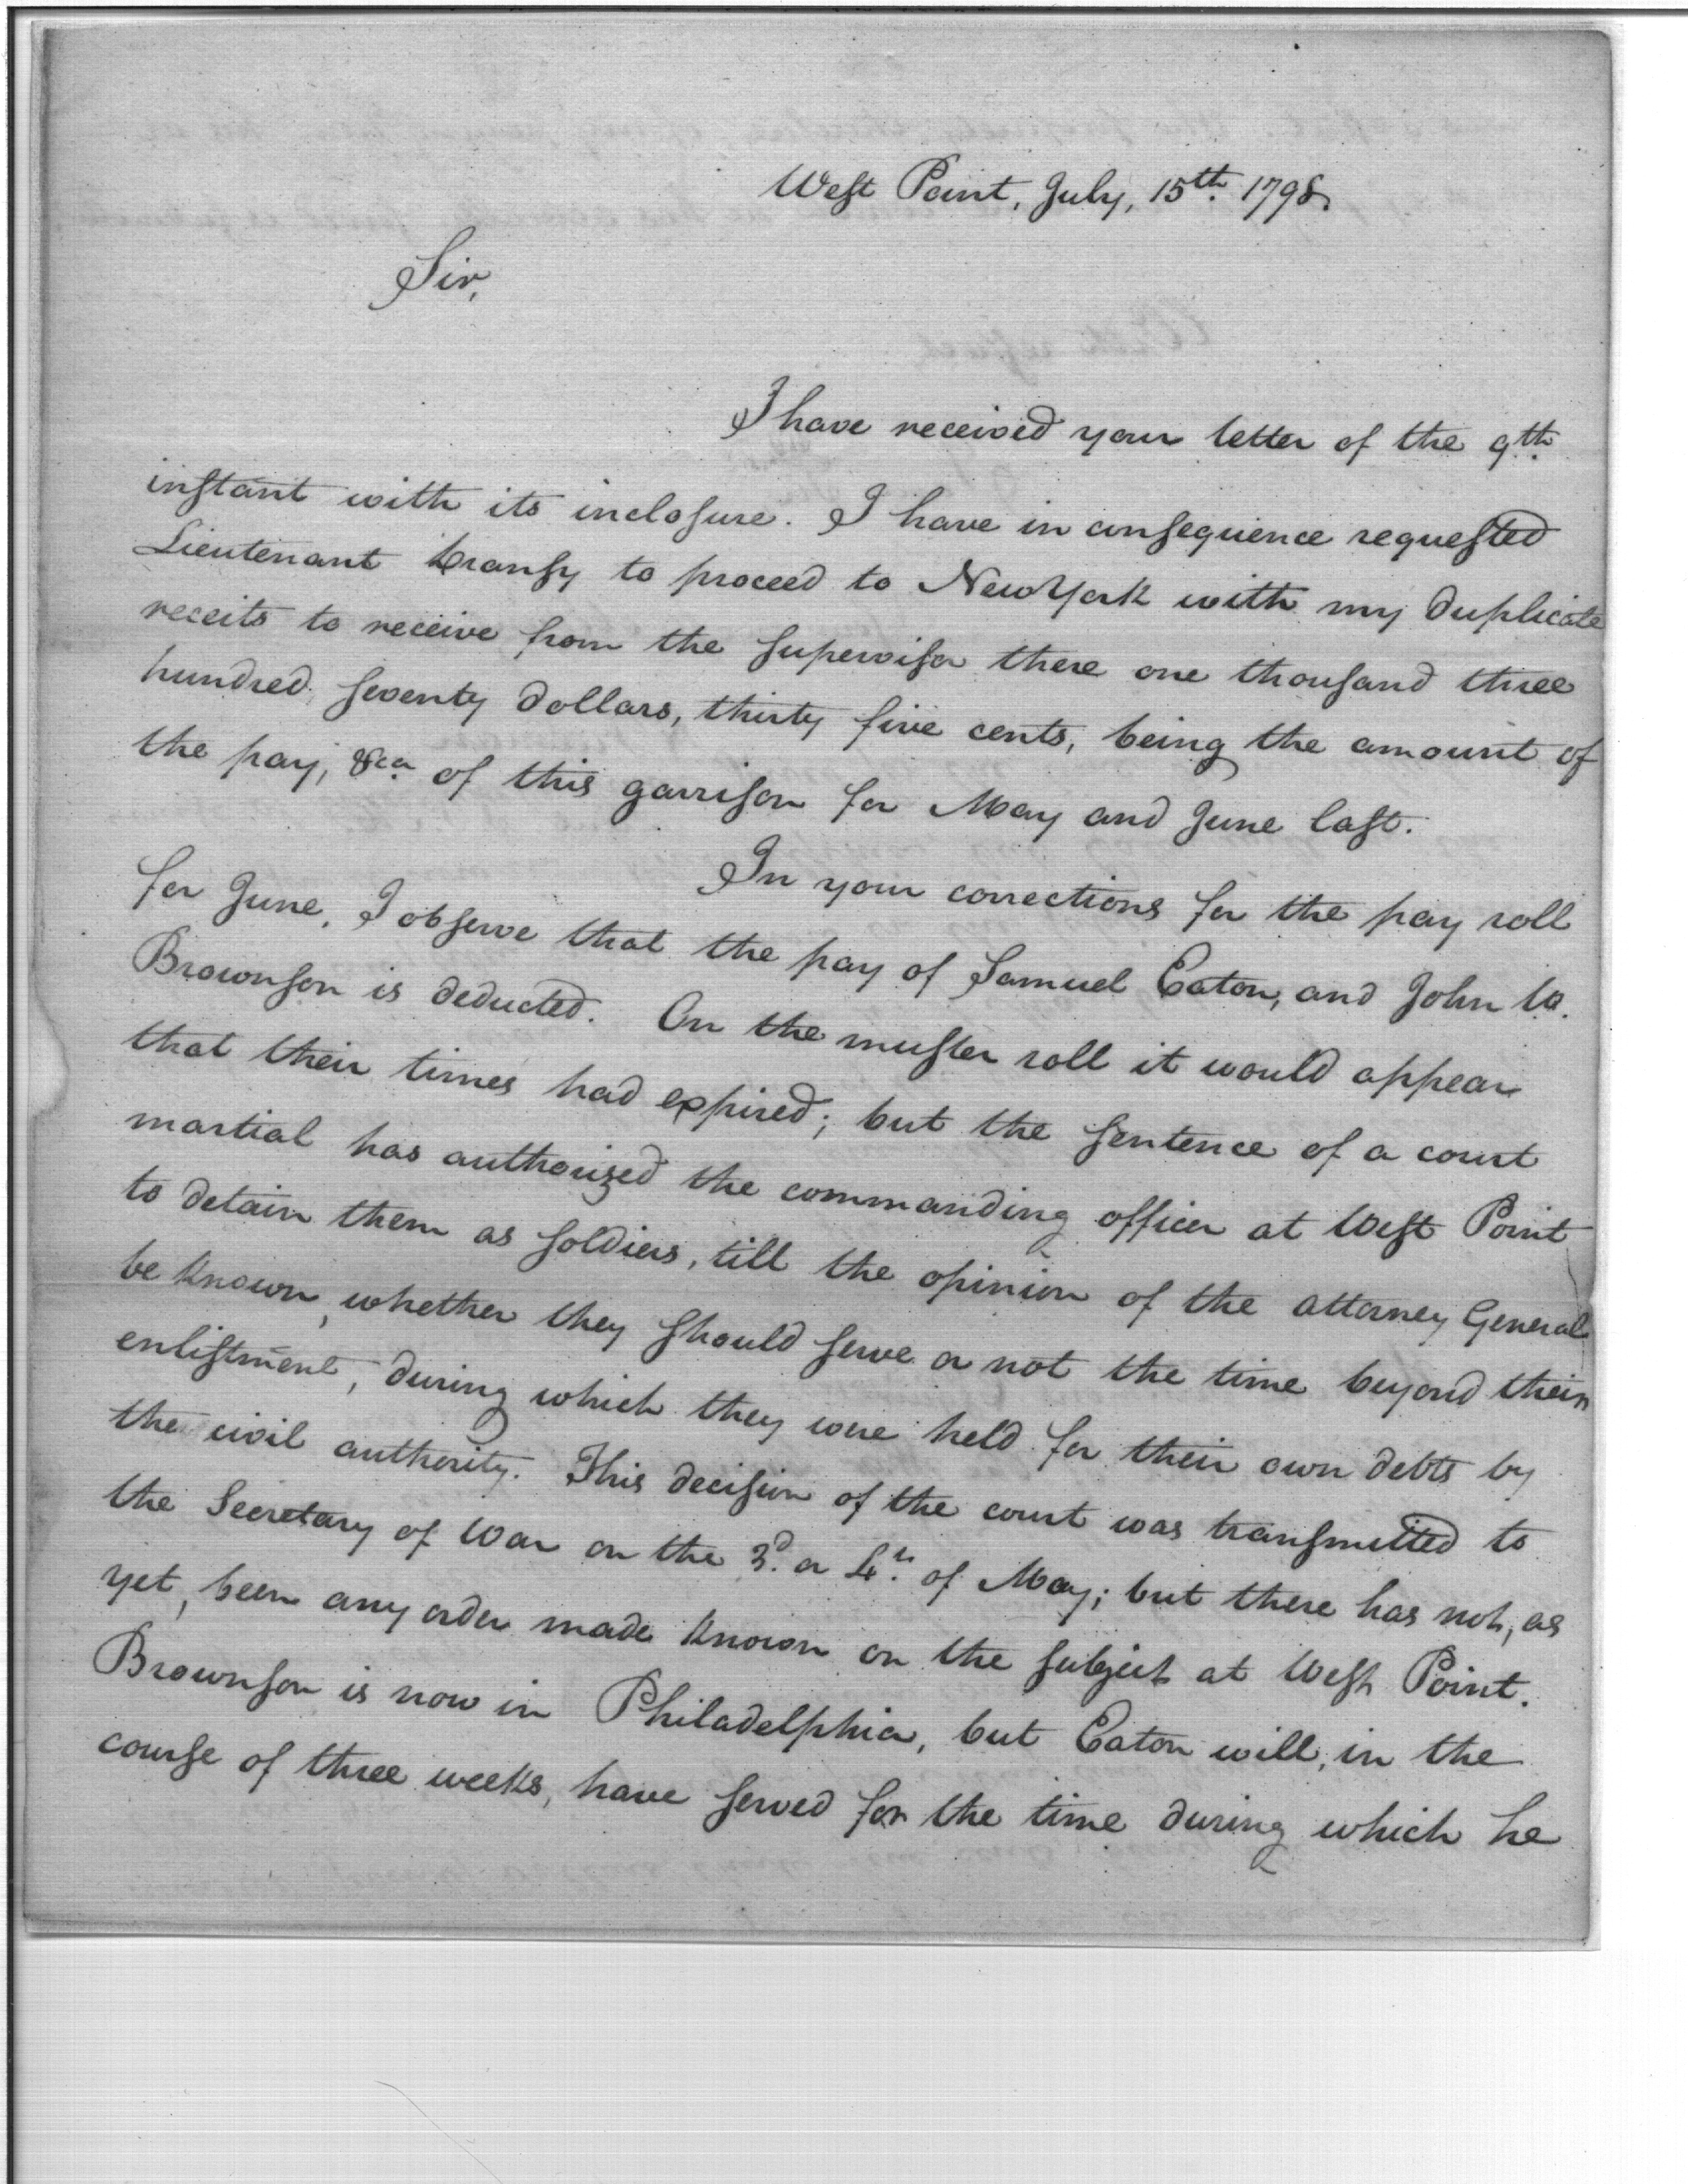 West Point, July, 15th. 1798.
Sir,
I have received your letter of the 9th.
instant with its inclosure. I have in consequence requested
Lieutenant to proceed to New York with my duplicate
receits to receive from the supervisor there one thousand three
hundred seventy dollars, thirty five cents, being the amount of
the pay, &ca. of this garrison for May and June last.
In your corrections for the pay roll
for June, I observe that the pay of Samuel Eaton, and John W.
Brownson is deducted. On the muster roll it would appear
that their times had expired; but the sentence of a court
martial has authorized the commanding officer at West Point
to detain them as soldiers, till the opinion of the attorney General
be known, whether they should serve or not the time beyond their
enlistment, during which they were held for their own debts by
the civil authority. This decision of the court was transmitted to
the Secretary of War on the 3d. or 4th. of May; but there has not, as
yet, been any order made known on the subject at West Point.
Brownson is now in Philadelphia, but Eaton will, in the
course of three weeks, have served for the time during which he